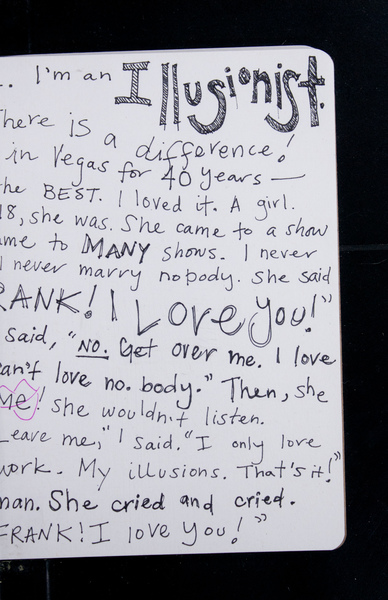 .. I'm an Illusionist.
here is a difference!
in Vegas for 40 years —
the BEST. I loved it. A girl.
18, she was. She came to a show
ame to MANY shows. I never
I never marry nobody. She said
RANK! I Love You!"
said, "NO. Get over me. I love
an't love no. body." Then, she
me! She wouldn't listen.
Leave me," I said. "I only love
work. My illusions. That's it!"
man. She cried and cried.
FRANK! I love you!"